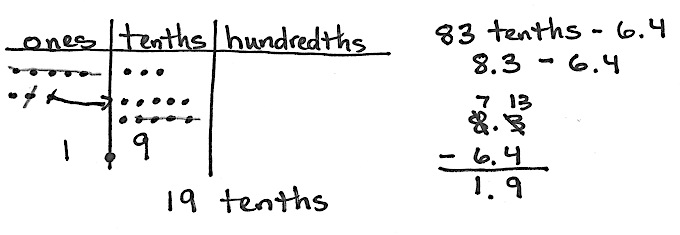 ones tenths hundredths
1 . 9
19 tenths
83 tenths - 6.4
8.3 - 6.4
7 13
8.3
- 6.4
1.9